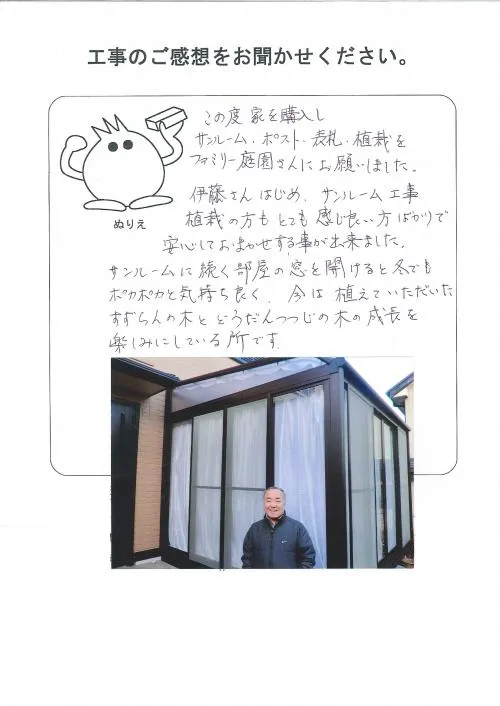 工事のご感想をお聞かせください。
この度 家を購入し
サンルーム・ポスト・表札・植栽を
ファミリー庭園さんにお願いしました。
伊藤さんはじめ、サンルーム工事
植栽の方もとても感じ良い方ばかりで
安心しておまかせする事が出来ました。
ぬりえ
サンルームに続く部屋の窓を開けると冬でも
ポカポカと気持ち良く、今は植えていただいた
すずらんの木とどうだんつつじの木の成長を
楽しみにしている所です。